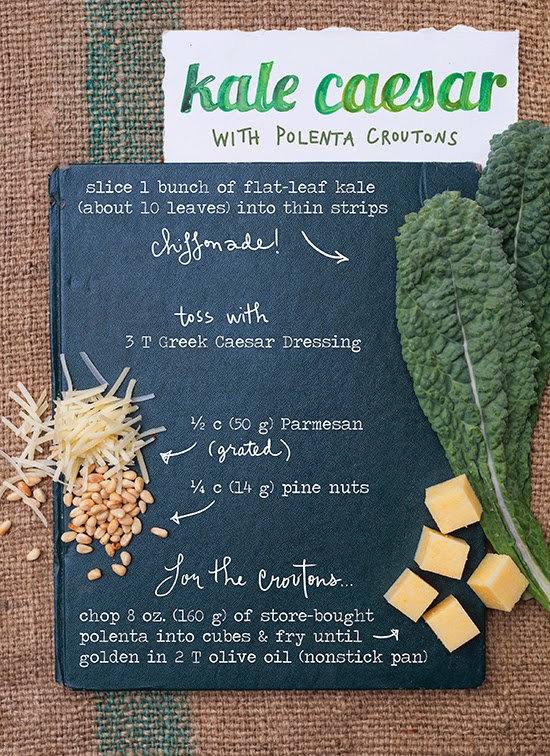 kale caesar
WITH POLENTA CROUTONS
slice 1 bunch of flat-leaf kale
(about 10 leaves) into thin strips
chiffonade!
toss with
3 T Greek Caesar Dressing
½ c (50 g) Parmesan
(grated)
¼ c (14 g) pine nuts
for the croutons...
chop 8 oz. (160 g) of store-bought
polenta into cubes & fry until
golden in 2 T olive oil (nonstick pan)